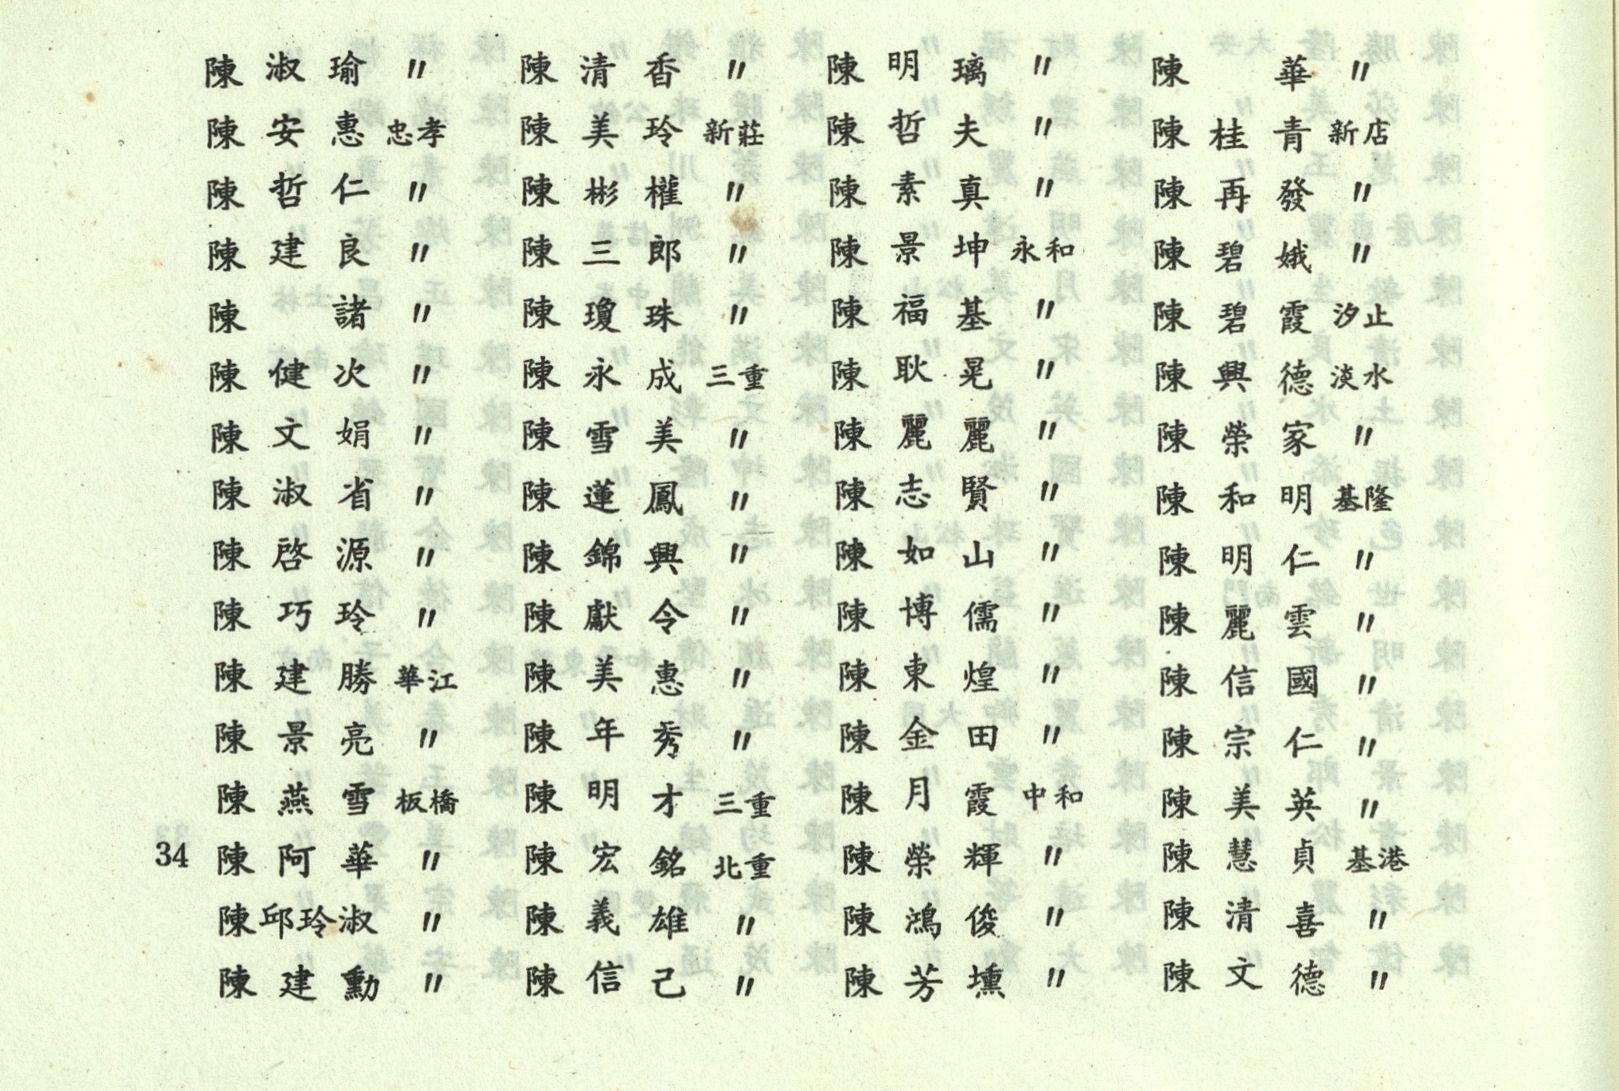 陳淑瑜 〃
陳安惠 忠孝
陳哲仁 〃
陳建良 〃
陳諸 〃
陳健次 〃
陳文娟 〃
陳淑省 〃
陳啓源 〃
陳巧玲 〃
陳建勝 華江
陳景亮 〃
陳燕雪 板橋
陳阿華 〃
陳邱玲淑 〃
陳建勳 〃
陳清香 〃
陳美玲 新莊
陳彬權 〃
陳三郎 〃
陳瓊珠 〃
陳永成 三重
陳雪美 〃
陳蓮鳳 〃
陳錦興 〃
陳獻令 〃
陳美惠 〃
陳年秀 〃
陳明才 三重
陳宏銘 北重
陳義雄 〃
陳信己 〃
陳明璃 〃
陳哲夫 〃
陳素真 〃
陳景坤 永和
陳福基 〃
陳耿晃 〃
陳麗麗 〃
陳志賢 〃
陳如山 〃
陳博儒 〃
陳東煌 〃
陳金田 〃
陳月霞 中和
陳榮輝 〃
陳鴻俊 〃
陳芳壎 〃
陳華 〃
陳桂青 新店
陳再發 〃
陳碧娥 〃
陳碧霞 汐止
陳興德 淡水
陳榮家 〃
陳和明 基隆
陳明仁 〃
陳麗雲 〃
陳信國 〃
陳宗仁 〃
陳美英 〃
陳慧貞 基港
陳清喜 〃
陳文德 〃
34